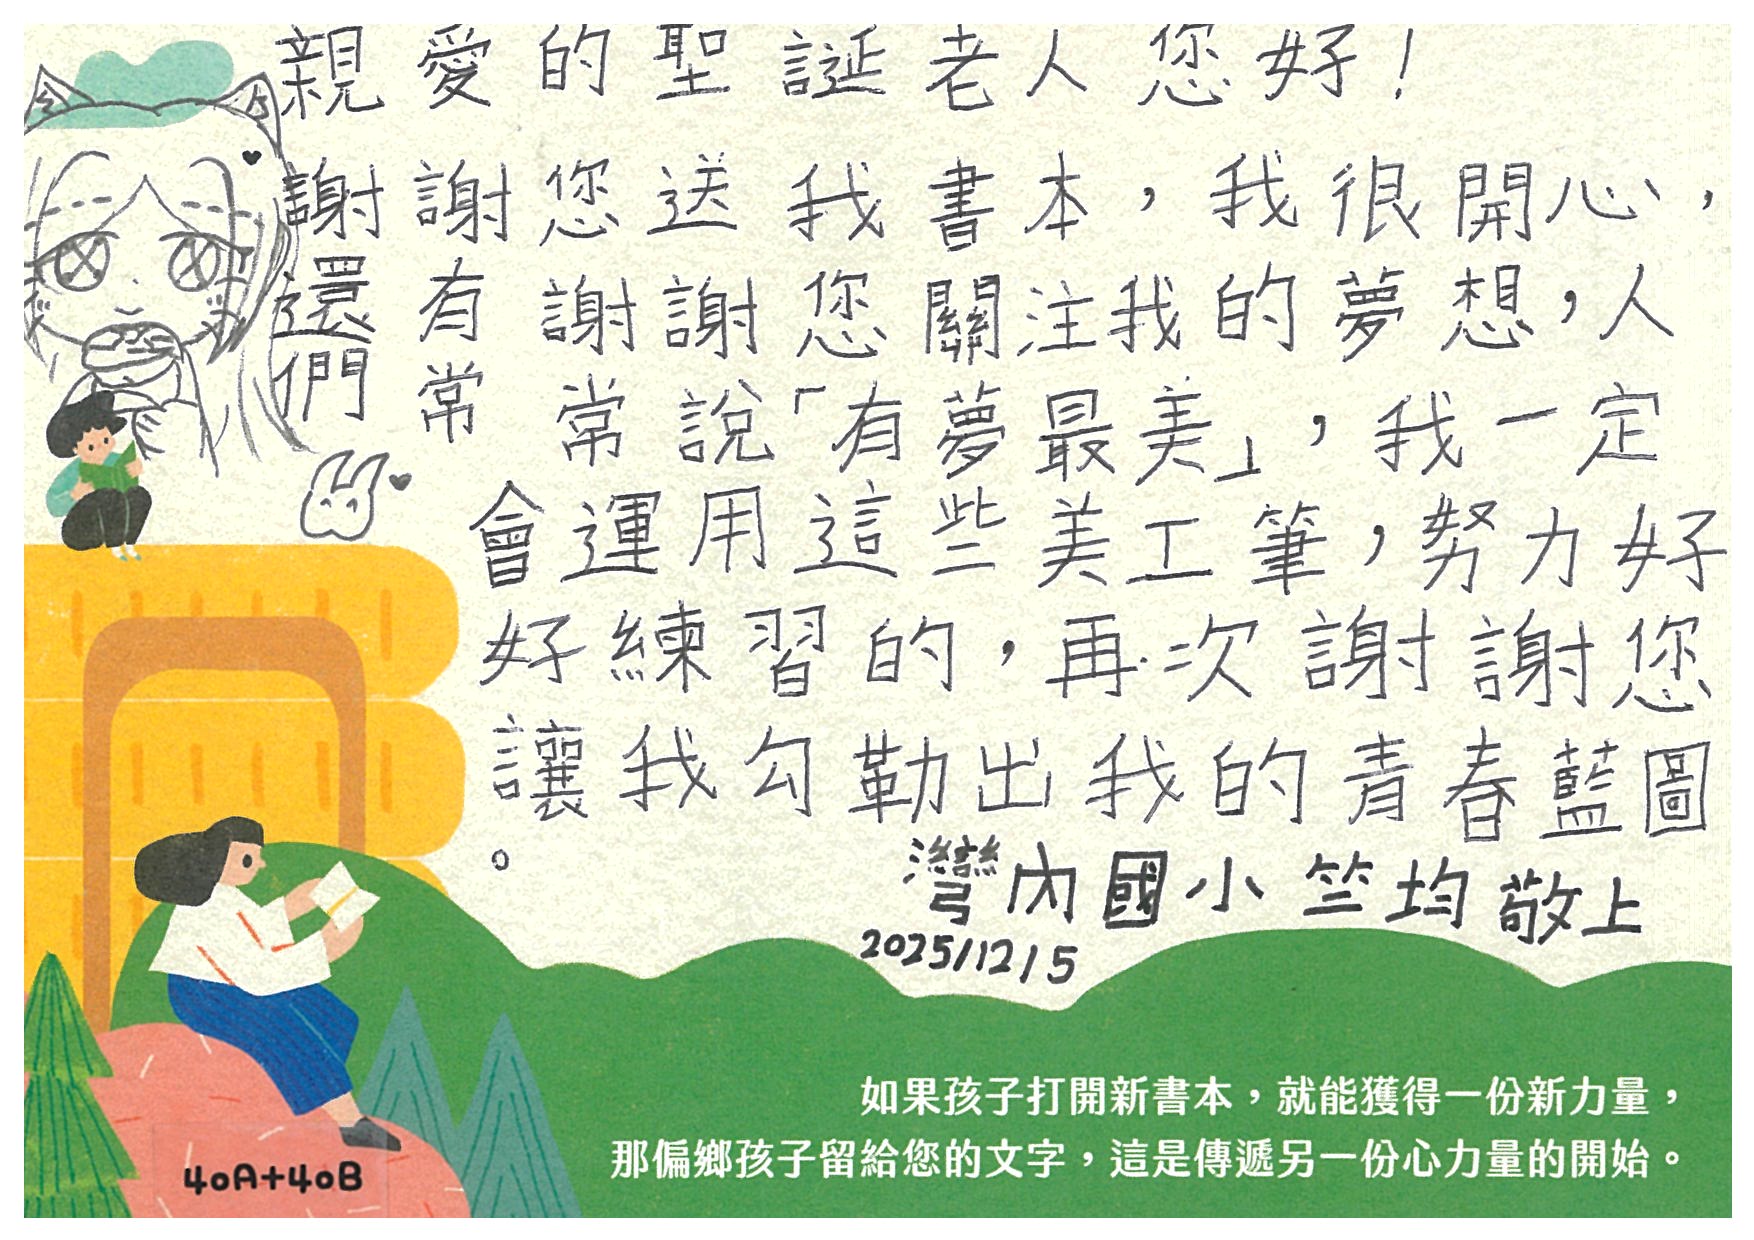 親愛的聖誕老人您好!
謝謝您送我書本,我很開心,
還有謝謝您關注我的夢想,人
們常常說「有夢最美」,我一定
會運用這些美工筆,努力好
好練習的,再次謝謝您
讓我勾勒出我的青春藍圖
。
灣內國小 竺均 敬上
2025/12/15
如果孩子打開新書本,就能獲得一份新力量,
那偏鄉孩子留給您的文字,這是傳遞另一份心力量的開始。
40A+40B